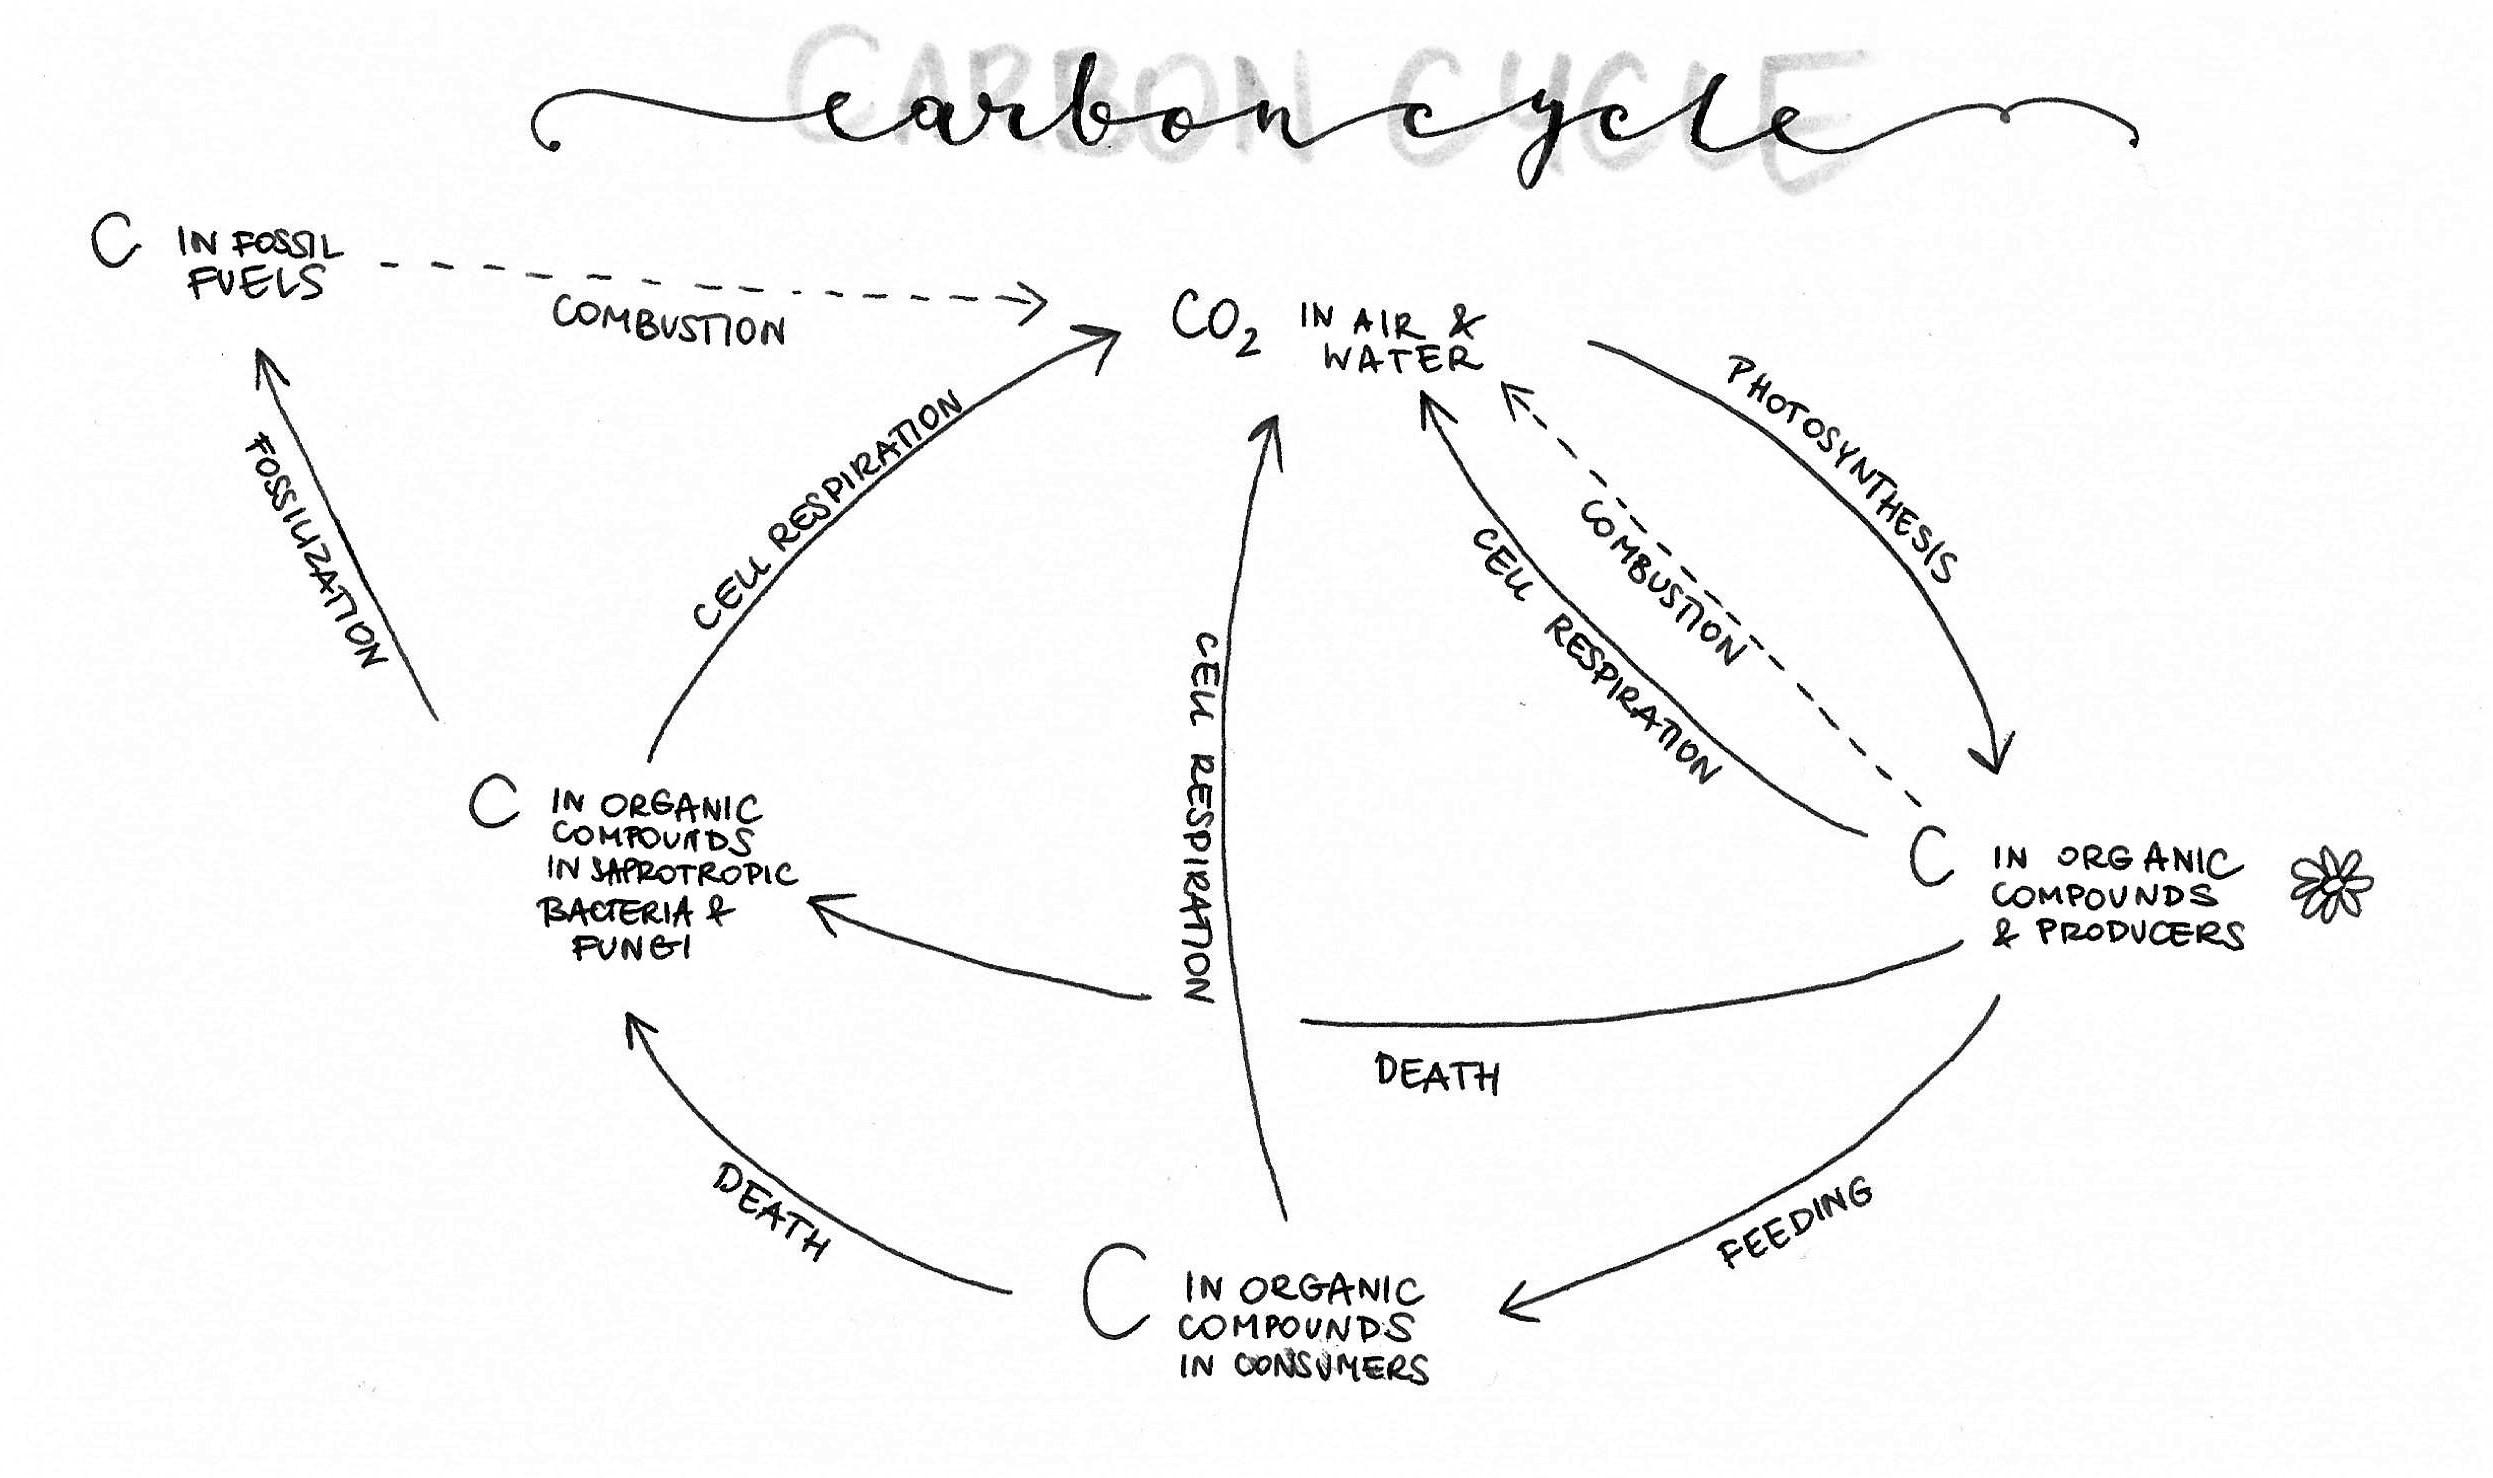 CARBON CYCLE
carbon cycle
C IN FOSSIL
FUELS
COMBUSTION
CO₂ IN AIR &
WATER
PHOTOSYNTHESIS
FOSSILIZATION
CELL RESPIRATION
CELL RESPIRATION
COMBUSTION
CELL RESPIRATION
C IN ORGANIC
COMPOUNDS
IN SAPROTROPIC
BACTERIA &
FUNGI
C IN ORGANIC
COMPOUNDS
& PRODUCERS
DEATH
DEATH
FEEDING
C IN ORGANIC
COMPOUNDS
IN CONSUMERS